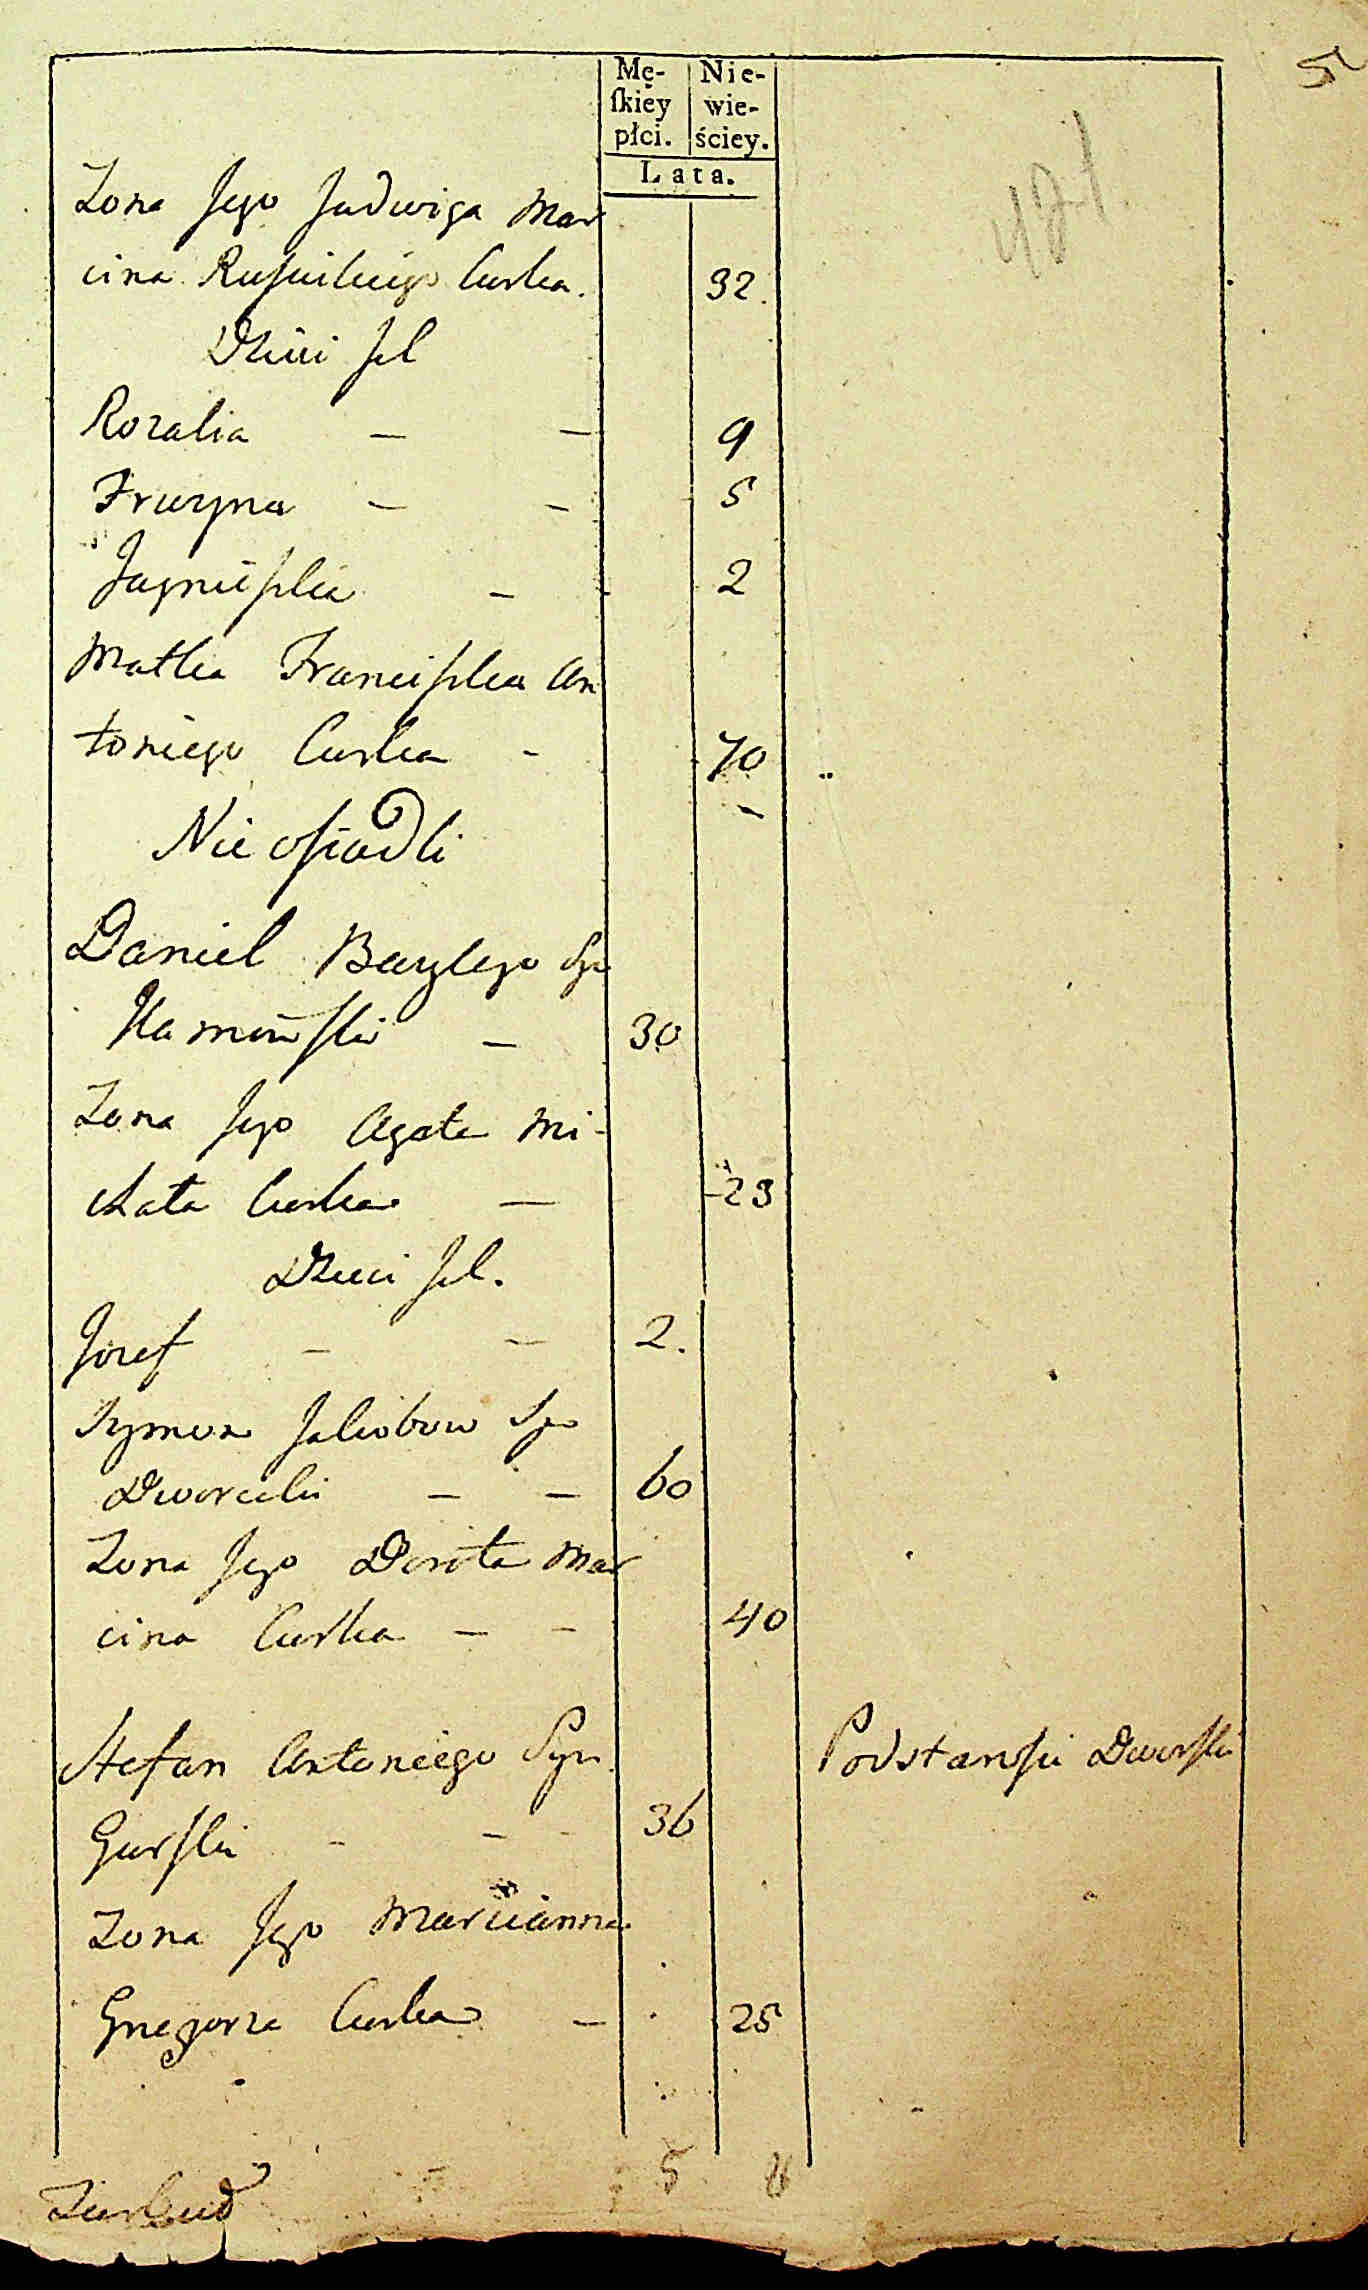 5
Mę-
ſkiey
płci.
Nie-
wie-
ściey.
Lata.
421
Zona Jego Jadwiga Mar
cina Curka. 32.
Dzieci Jch
Rozalia — — 9
Fruzyna — - 5
Jagnieſzka - 2
Matka Franciſzka An
toniego Curka - 70
Nie oſiadli
Daniel Bazylego Syn
Kamińſki — 30
Zona Jego Agata Mi-
chała Curka — 23
Dzieci Jch.
Jozef — — 2.
Szymon Jakobow Syn
Dworecki — — 60
Zona Jego Dorota Mar
cina Curka — - 40
Stefan Antoniego Syn Podstarości Dworſki
Gurſki - - - 36
Zona Jego Marcianna
Gregorza Curka — 25
5 8